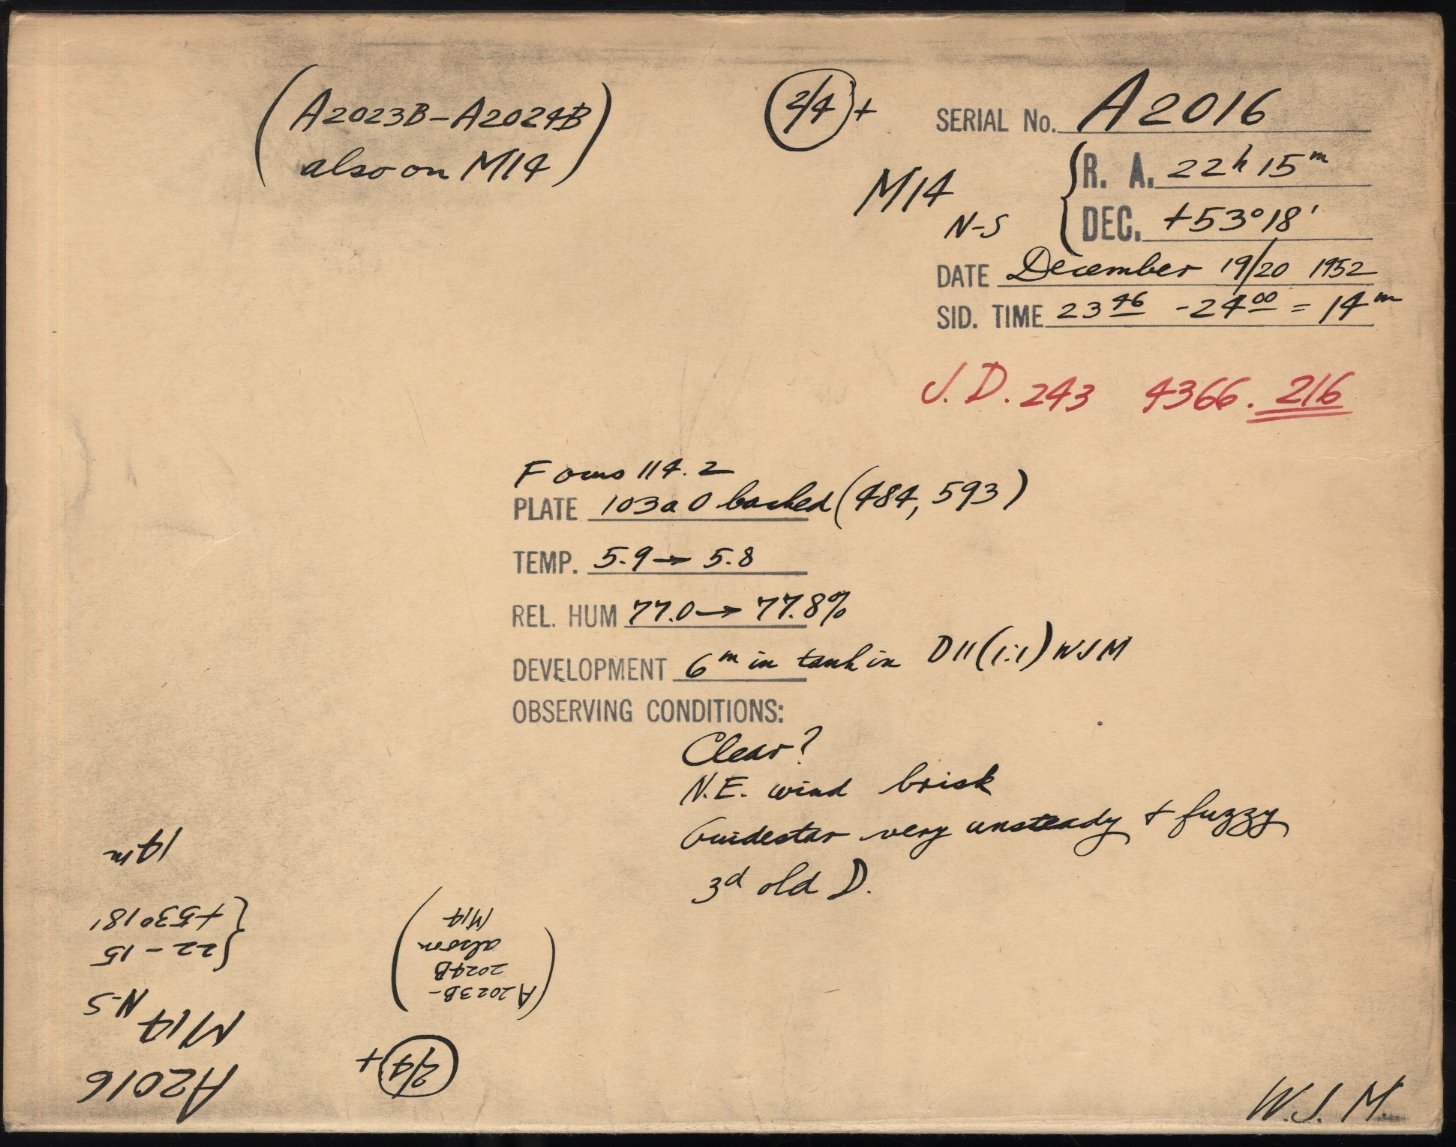 (A2023B-A2024B)
also on M14
2/4 +
SERIAL No. A2016
M14
N-S
R. A. 22h 15m
DEC. +53°18'
DATE December 19/20 1952
SID. TIME 23 46 - 24 00 = 14m
J.D. 243 4366.216
Focus 114.2
PLATE 103a O backed (484, 593)
TEMP. 5.9 → 5.8
REL. HUM 77.0 → 77.8%
DEVELOPMENT 6m in tank in D11 (1:1) WJM
OBSERVING CONDITIONS:
Clear?
N.E. wind brisk
Guidestar very unsteady + fuzzy
3d old D.
W.J.M.
A2016
M14
N-S
{22-15
{+53°18'
14m
2/4 +
(A2023B-
2024B
also on
M14)